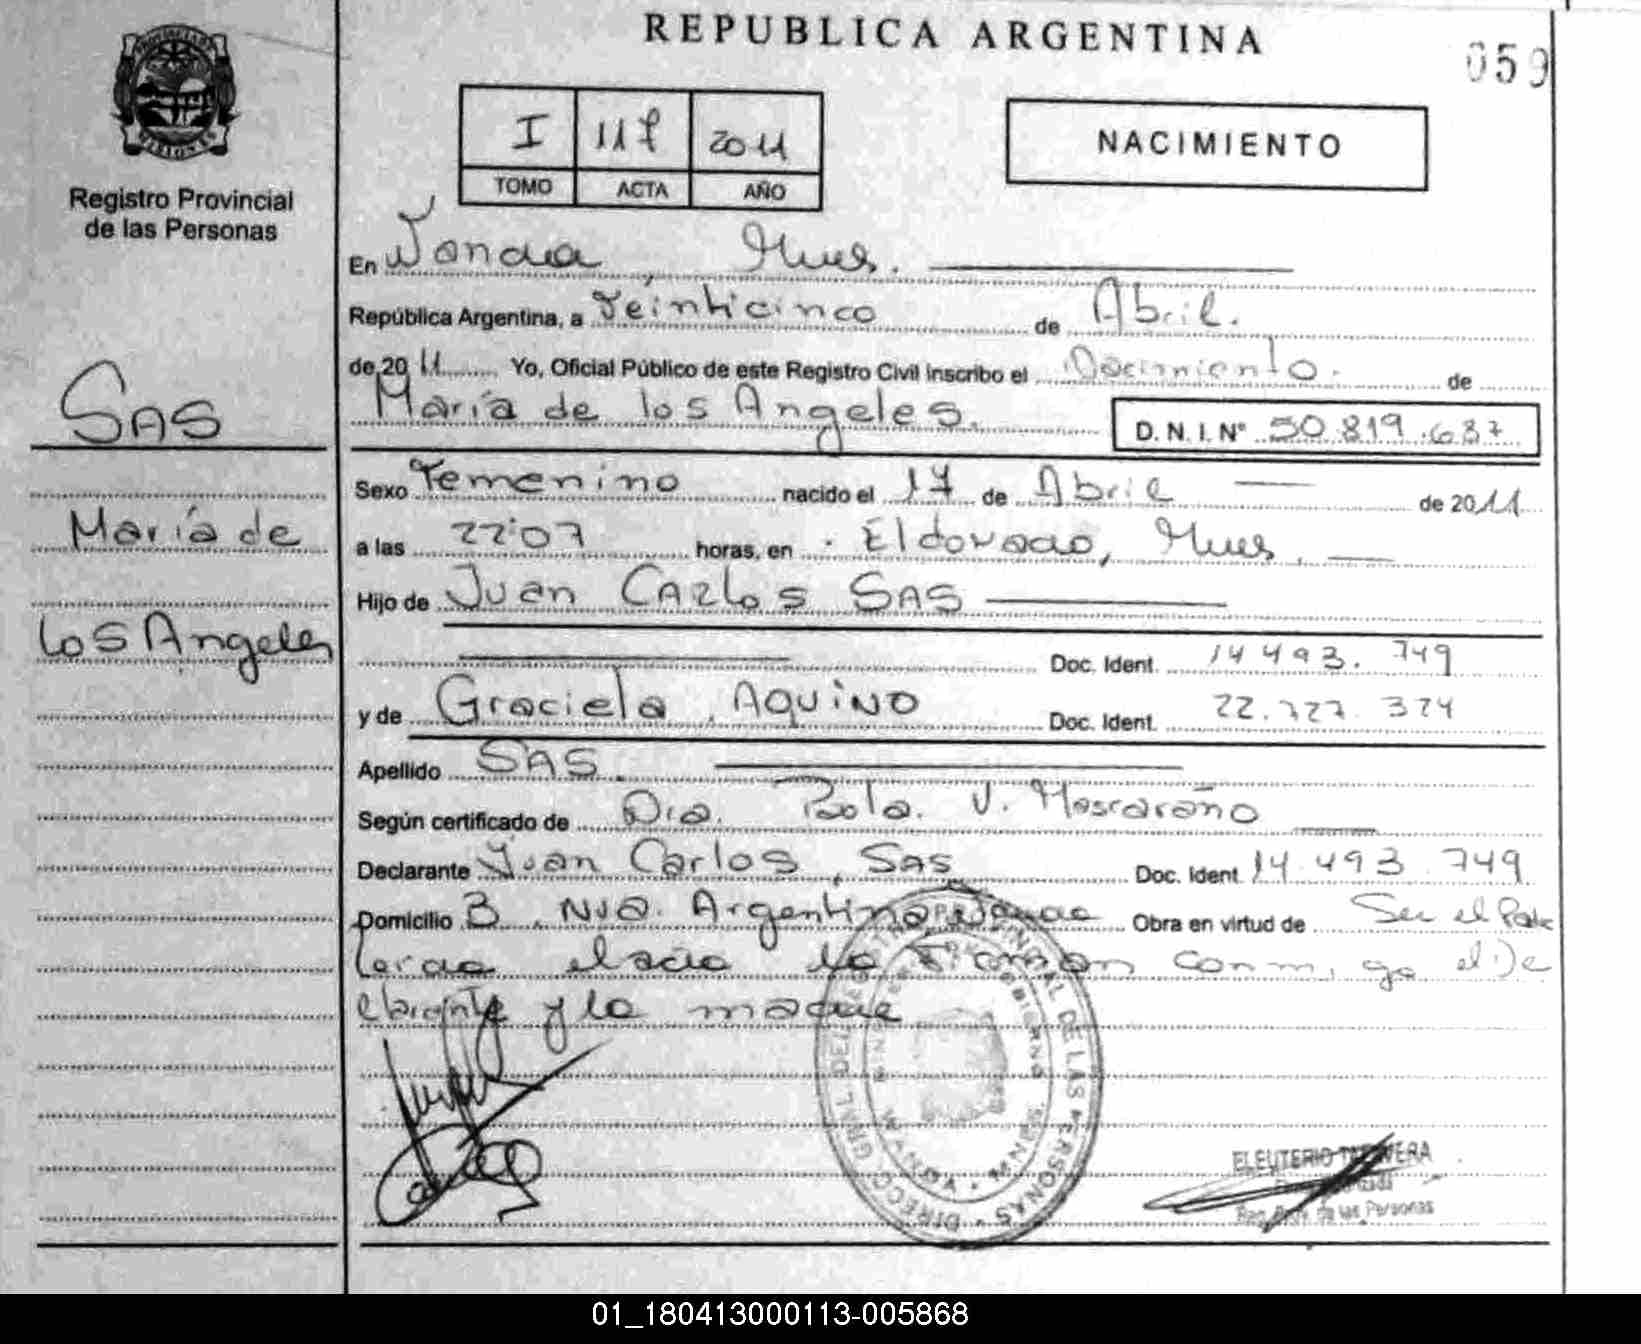 REPUBLICA ARGENTINA
059
PROVINCIA DE MISIONES
Registro Provincial
de las Personas
I 117 2011
TOMO ACTA AÑO
NACIMIENTO
En Wanda, Mnes.
República Argentina, a Veinticinco de Abril.
de 2011 Yo, Oficial Público de este Registro Civil inscribo el Nacimiento. de
María de los Angeles. D. N. I. Nº 50.819.687
SAS
María de
los Angeles
Sexo Femenino nacido el 17 de Abril de 2011
a las 22:07 horas, en Eldorado, Mnes.
Hijo de Juan Carlos SAS
Doc. Ident. 14 493. 749
y de Graciela, AQUINO Doc. Ident. 22.727.374
Apellido SAS
Según certificado de Dra. V.
Declarante Juan Carlos, SAS Doc. Ident 14.493.749
Domicilio B, Nva. Argentina, Wanda Obra en virtud de Ser el Padre
Leída el acta la Firman conmigo el De
clarante y la madre
DIRECC. GRAL. DEL REGISTRO PROVINCIAL DE LAS PERSONAS
WANDA - MNES.
ELEUTERIO TALAVERA
Reg. Prov. de las Personas
01_180413000113-005868